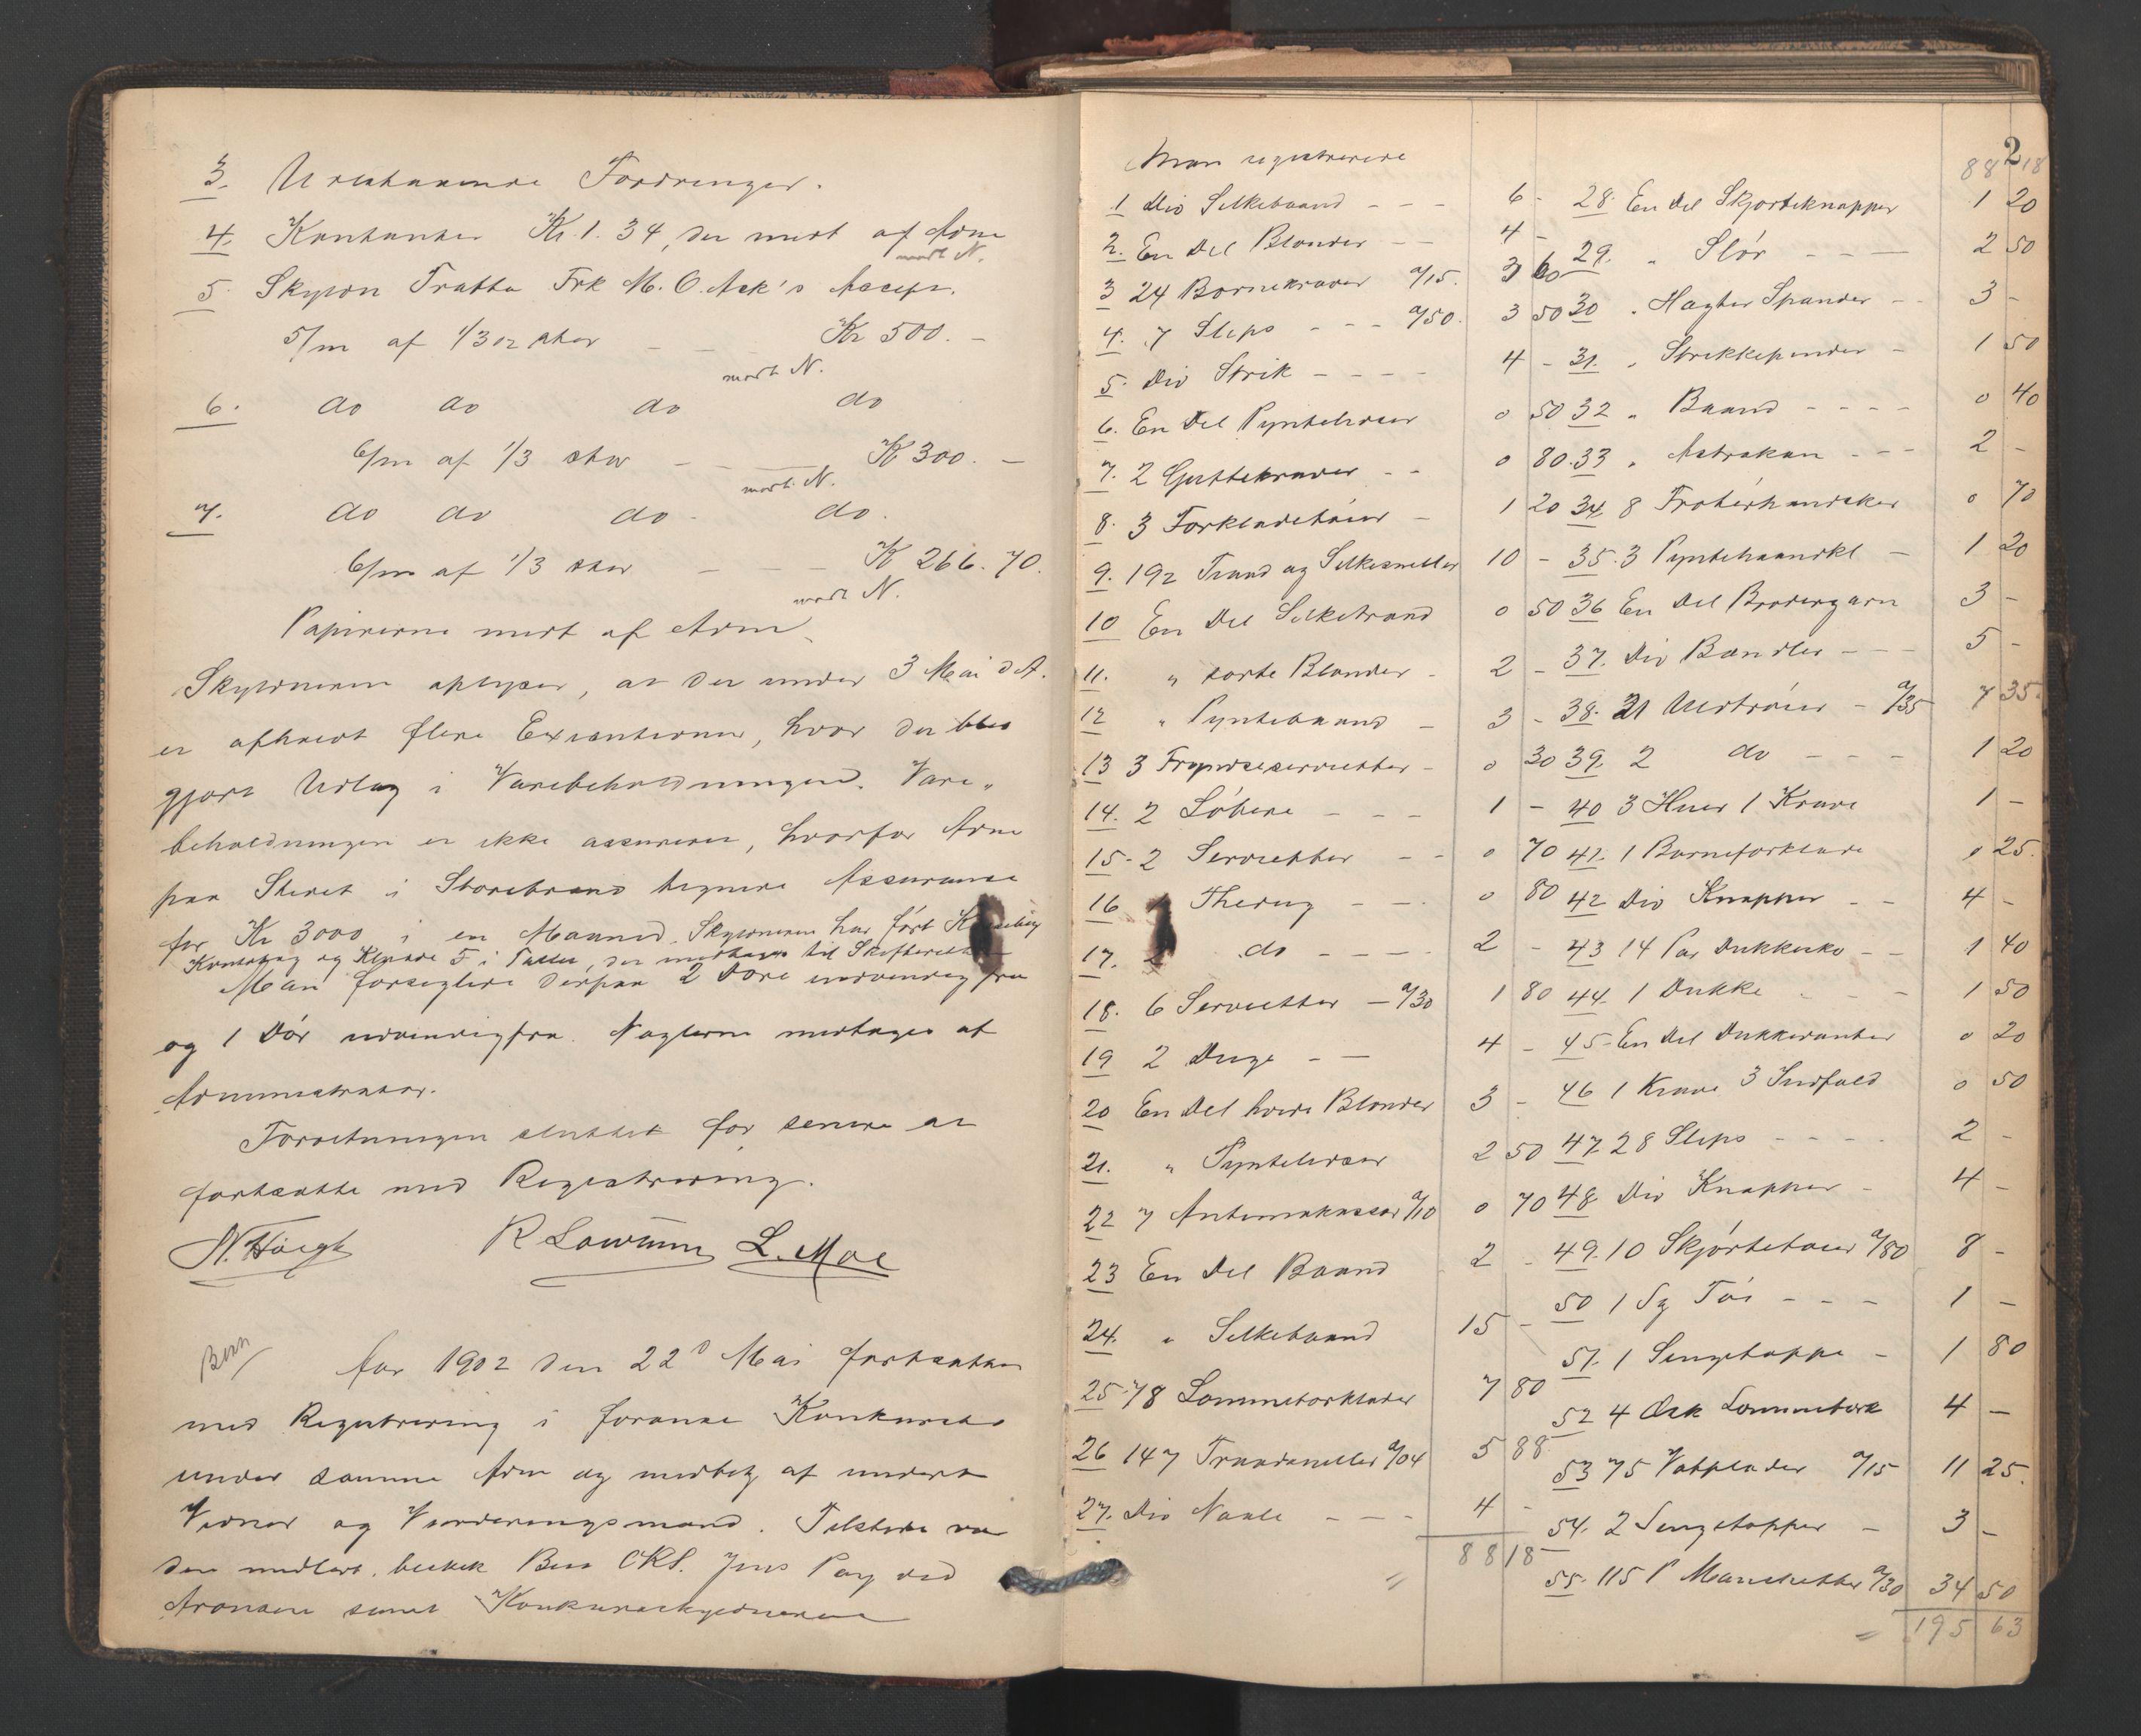 3. Udestaaende Fordringer.
4. Kontanter Kr. 1.34, der medt af Adm
medt N.
5. Skyldn Tratte Frk M. O. Ask's Accept.
5/m af 1/3 02 stor — — Kr 500. —
medt N.
6. do do do do
6/m af 1/3 stor — — K 300. —
medt. N.
7. do do do. do.
6/m af 1/3 stor — — — K 266.70.
medt N.
Papirerne medt af Adm.
Skyldneren oplyser, at der under 3 Mai d.A.
er afholdt flere Executioner, hvor der blev
gjort Udlæg i Varebeholdningen. Vare„
beholdningen er ikke assureret, hvorfor Adm
paa Stedet i Storebrand tegnede Assurance
for Kr 3000 i en Maaned. Skyldneren har ført
Kontobog og Kladde 5 i Tallet, der medtages til Skifteretten
Man forseglede derpaa 2 Døre indvendig fra
og 1 Dør udvendigfra. Nøglerne medtages af
Administrator.
Forretningen sluttet for senere at
fortsætte med Registrering.
N. Høegh R Lowumn L. Moe
Ber/
Aar 1902 den 22d Mai fortsattes
med Registrering i foranst Konkursbo
under samme Adm og medbetj af undert
Vidner og Vurderingsmænd. Tilstede var
den midlert. bestyrer OKS. Jens
Aronsen samt Konkursskyldneren
2
Man registrerede
1 Div Silkebaand - - - 6 -
2. En Del Blonder - - 4 -
3 24 Barnekraver a/15. 3 60
4. 7 Slips - - - a/50. 3 50
5. Div Strik - - - - 4 -
6. En Del Pyntelidser 0 50
7. 2 Guttekraver - - 0 80
8. 3 Forklædetøier - 1 20
9. 192 Traad og Silkesneller 10 -
10 En Del Silketraad 0 50
11. „ sorte Blonder - 2 -
12 „ Pyntebaand - 3 -
13 3 Frynseservietter - 0 30
14. 2 Løbere - - - 1 -
15 - 2 Servietter - - 0 70
16 Thedug - - - 0 80
17. 2 do - - - - 2 -
18. 6 Servietter — a/30 1 80
19 2 Duge - — 4 -
20 En Del hvide Blonder 3 -
21. „ Pyntelidser 2 50
22 7 Antimakassar a/10 0 70
23 En Del Baand 2 -
24. „ Silkebaand 15 -
25. 78 Lommetørklæder 7 80
26 147 Traadsneller a/04 5 88
27. Div Naale - - - 4 -
88 18
88 18
28. En Del Skjorteknapper 1 20
29. „ Slør - - — 2 50
30 „ Hægter Spænder - - 3 -
31. „ Strikkepinder - 1 50
32 „ Baand - - - - 0 40
33 „ Astrakan - - - 2 -
34. 8 Frotérhandsker 0 70
35. 3 Pyntehaandkl — 1 20
36 En Del Brodergarn 3 -
37. Div Bændler - - - 5 -
38. 21 Uldtrøier - a/35 7 35
39. 2 do - - - 1 20
40 3 Huer 1 Krave 1 -
41. 1 Barneforklæde 0 25.
42 Div Knapper - - 4 -
43 14 Par Dukkesko - - 1 40
44. 1 Dukke - - - 1 50
45 - En Del Dukkevanter 0 20
46 1 Krave 3 Indfald 0 50
47. 28 Slips - - - - 2 -
48. Div Knapper - 4 -
49. 10 Skjørtetøier a/80 8 -
50 1 Sz Tøi - - - 1 -
51. 1 Sengetæppe - 1 80
52 4 Æsk Lommetørk 4 —
53 75 Vatplader a/15 11 25.
54. 2 Sengetæpper — 3 -
55. 115 P Manchetter a/30 34 50
195 63